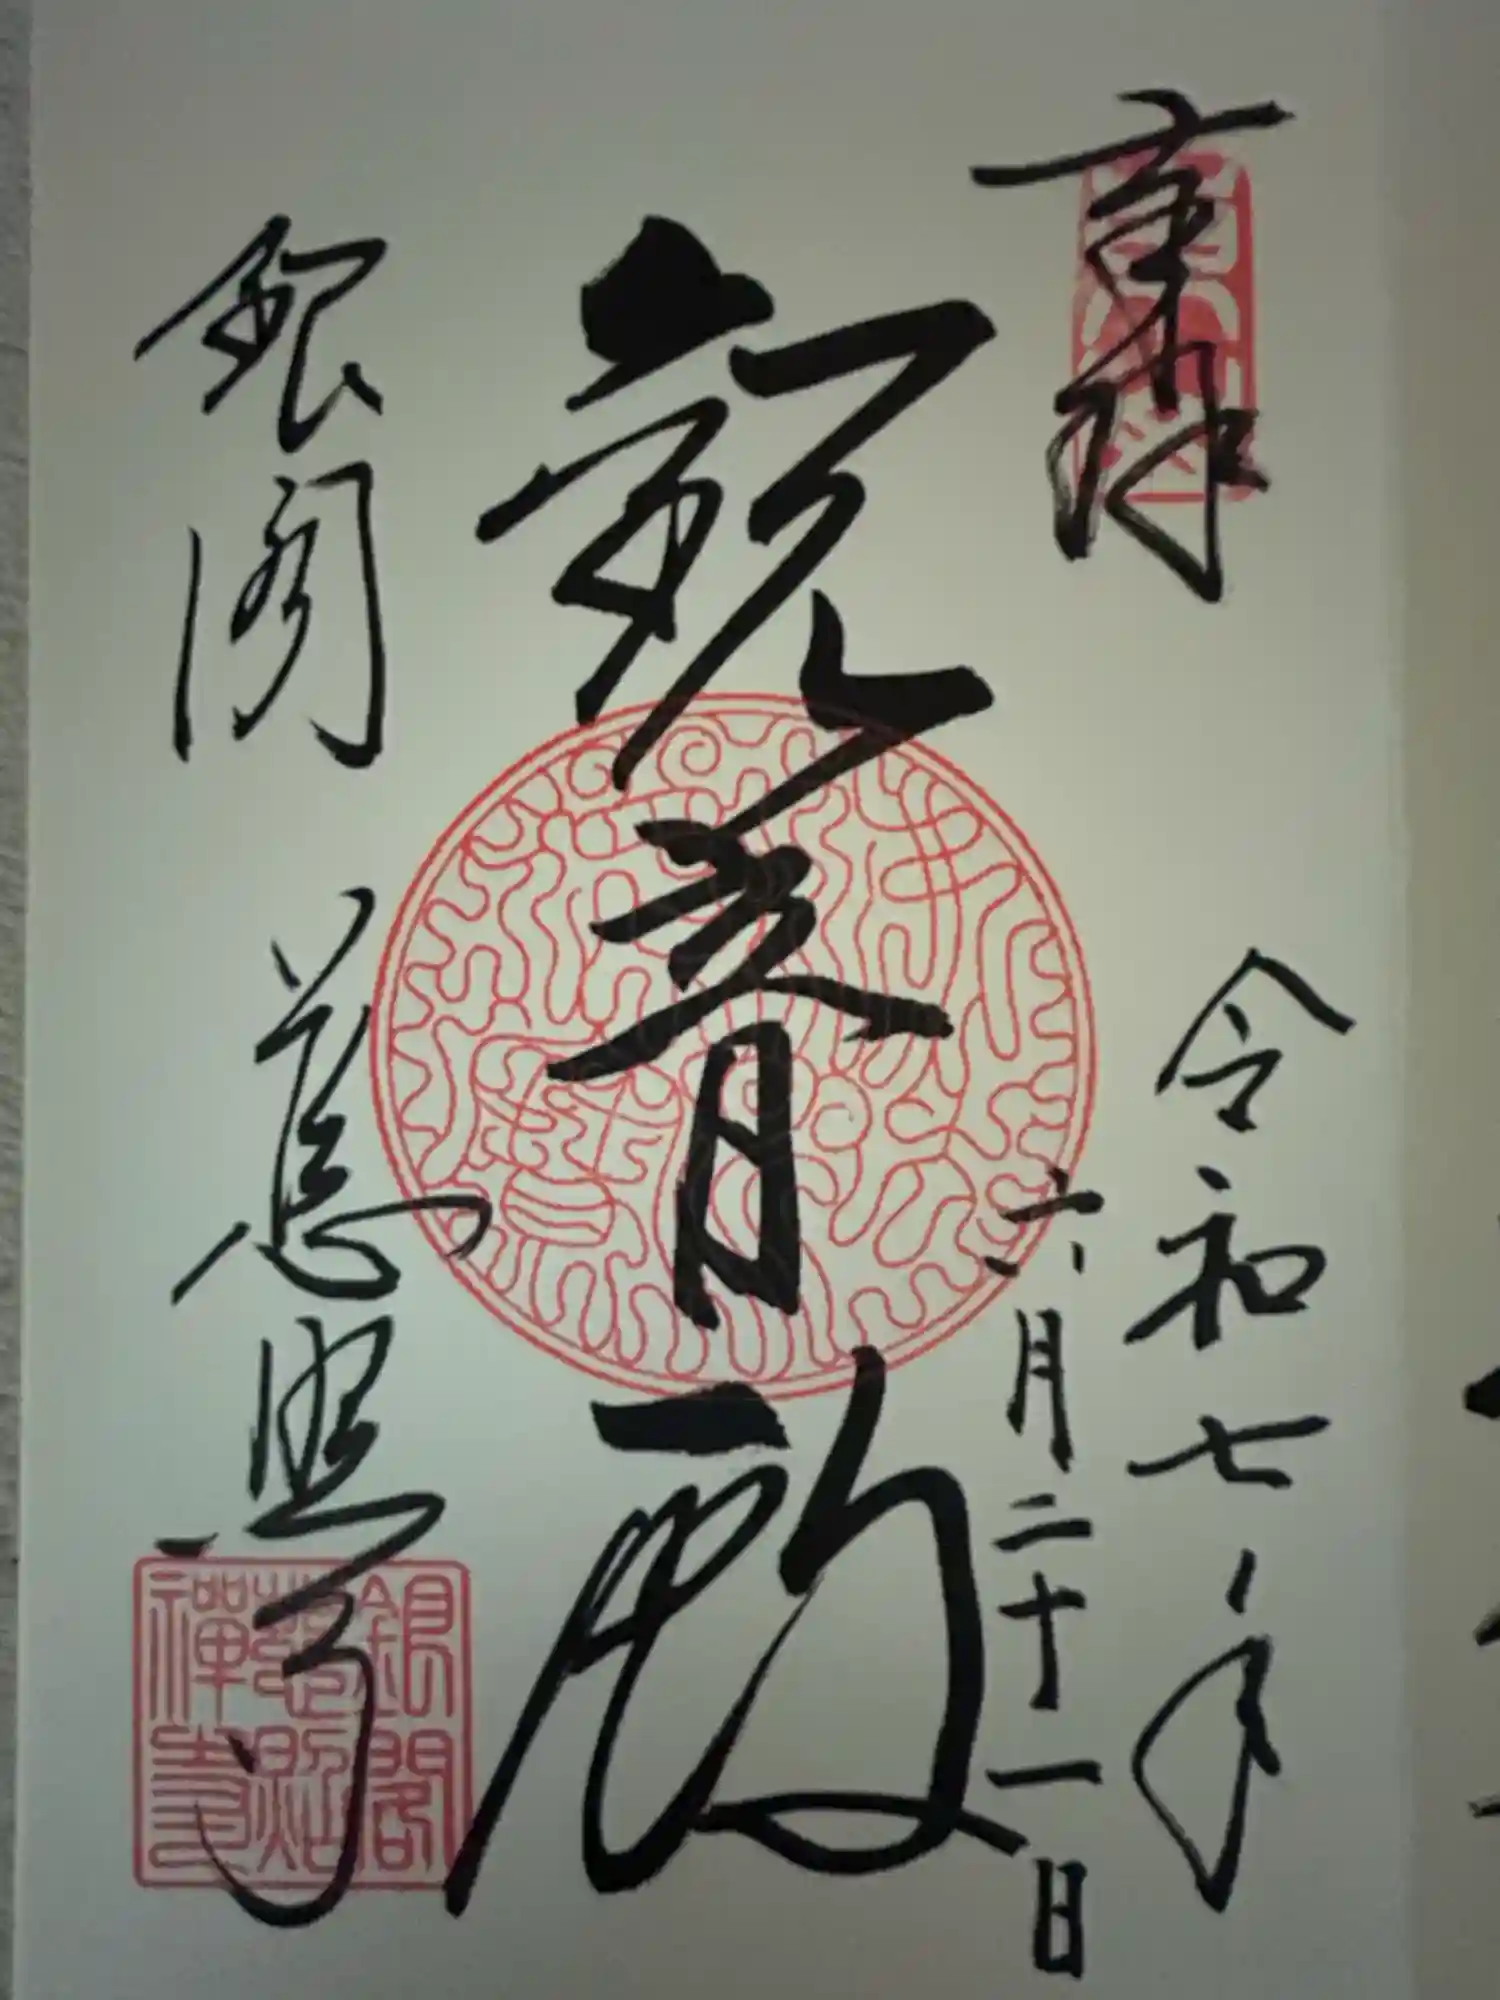 奉拝
令和七年
六月二十一日
観音殿
銀閣 慈照寺
銀閣
慈照
禅寺